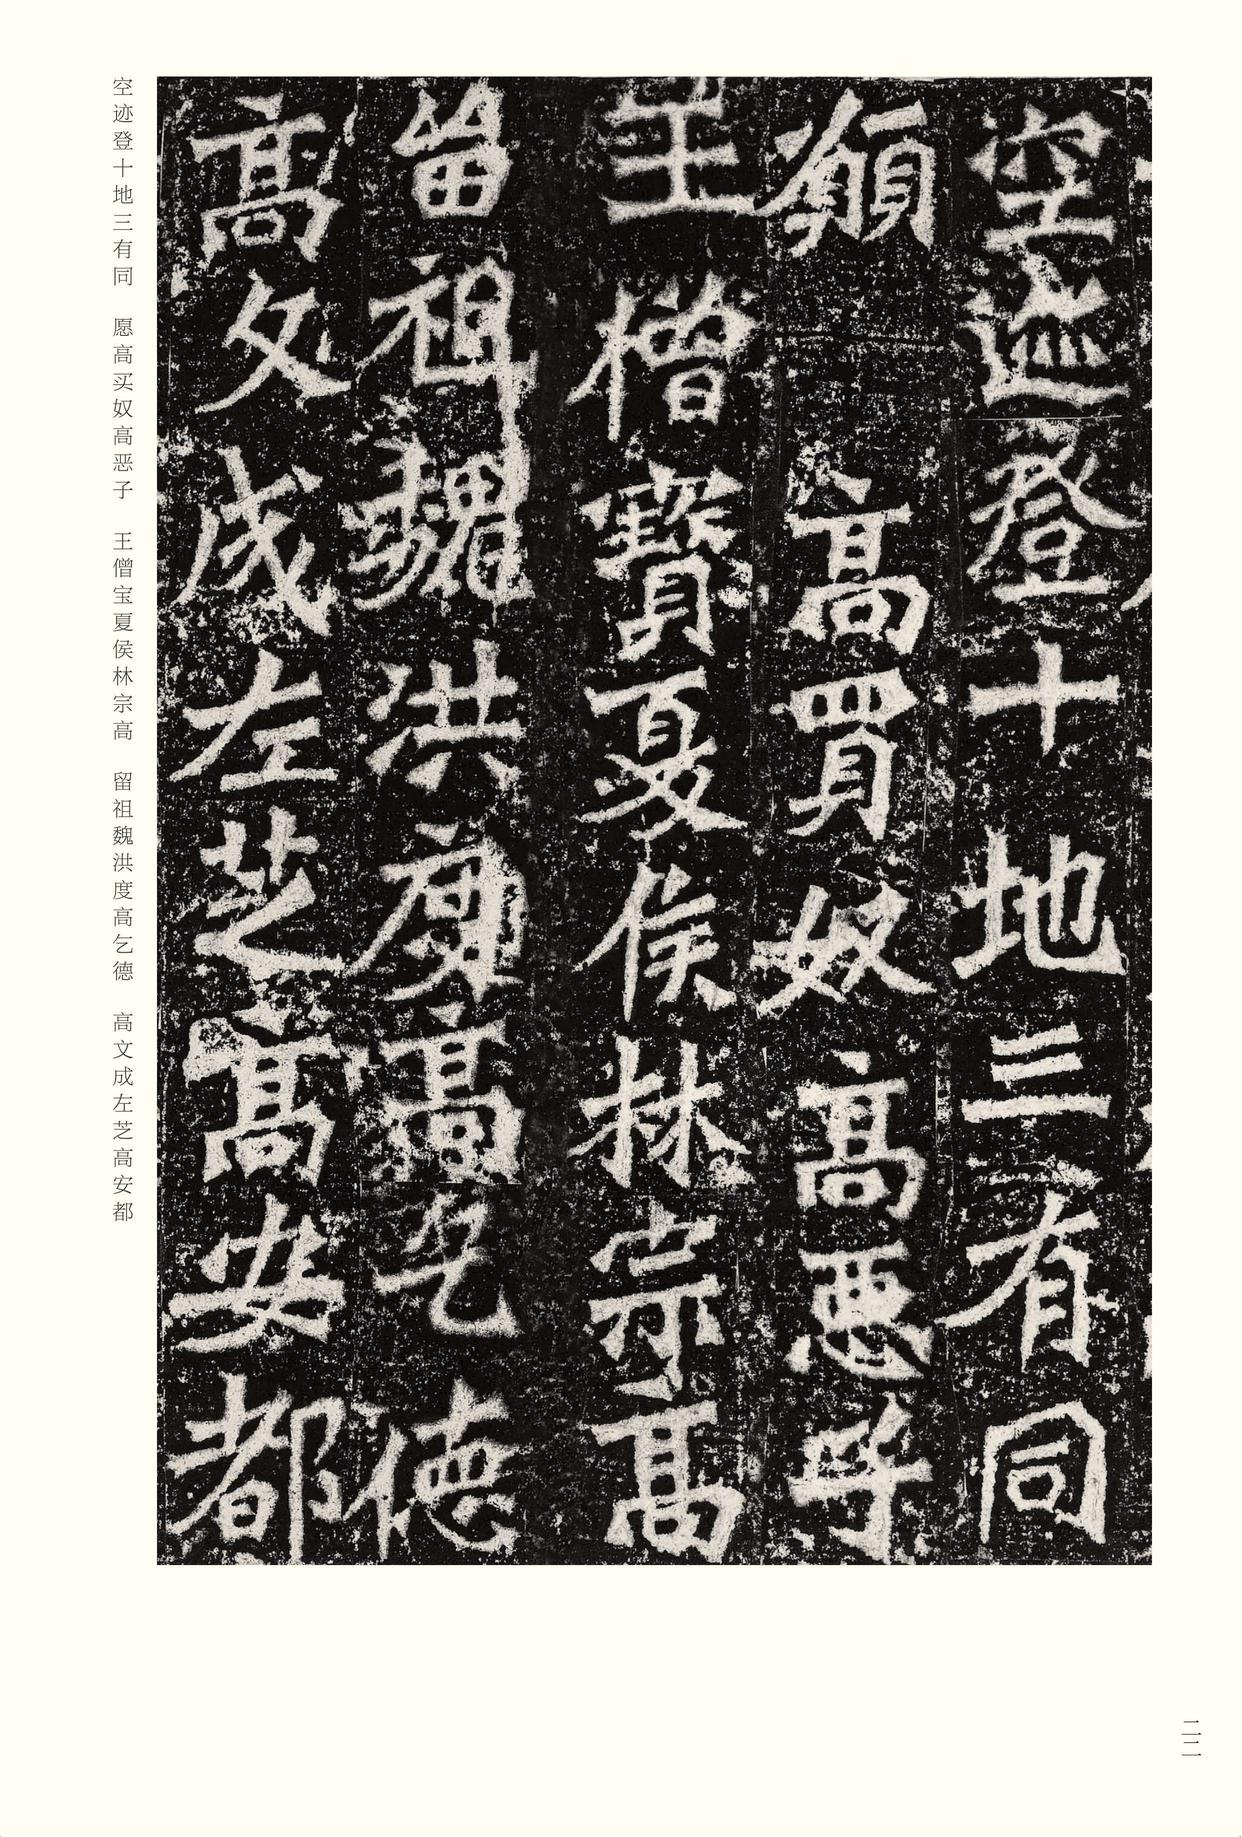 空迹登十地三有同
願高買奴高惡子
王僧寶夏侯林宗高
留祖魏洪度高乞德
高文成左芝高安都
空迹登十地三有同　愿高买奴高恶子　王僧宝夏侯林宗高　留祖魏洪度高乞德　高文成左芝高安都
二二